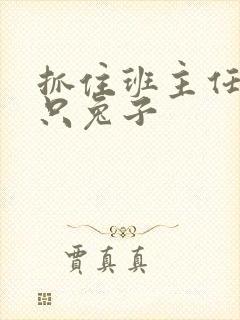 抓住班主任
只兔子
贾真真